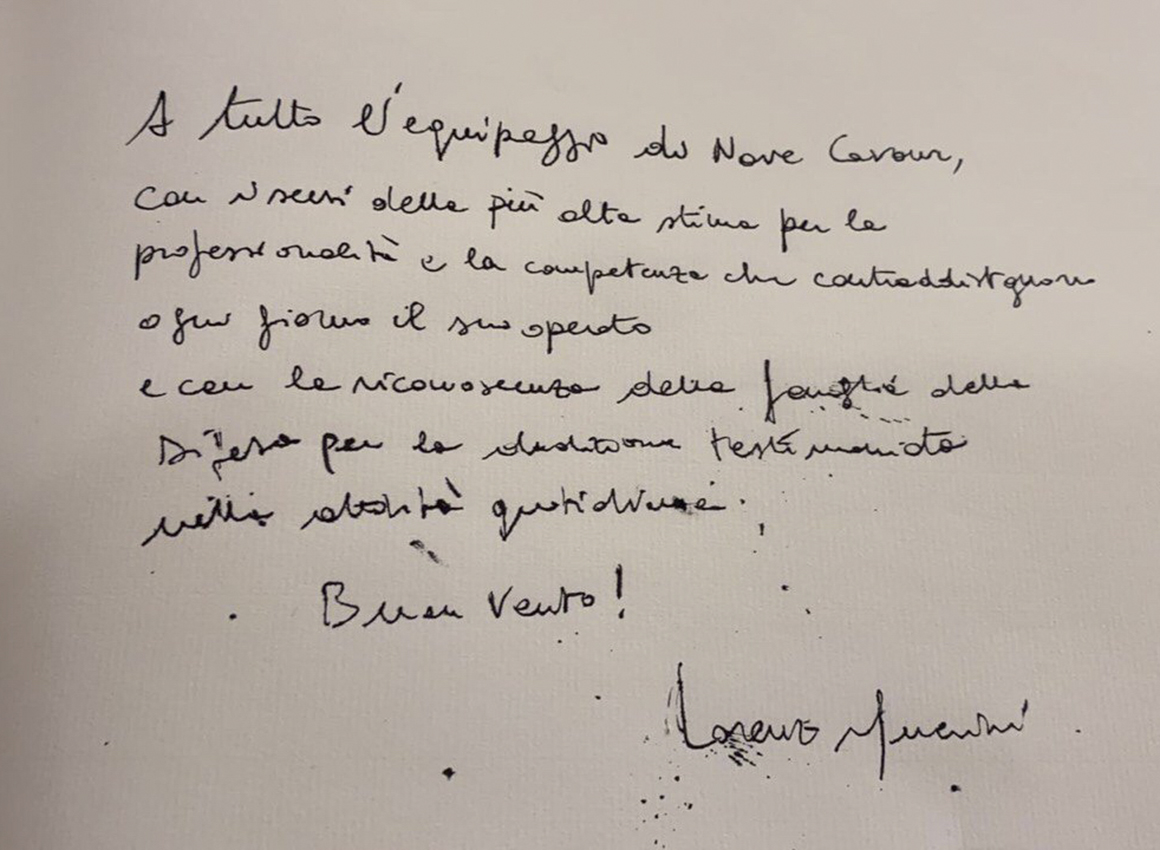 A tutto l'equipaggio di Nave Cavour,
con i sensi della più alta stima per la
professionalità e la competenza che contraddistinguono
ogni giorno il suo operato
e con la riconoscenza della famiglia della
Difesa per la dedizione testimoniata
nelle attività quotidiane.
Buon Vento!
Lorenzo